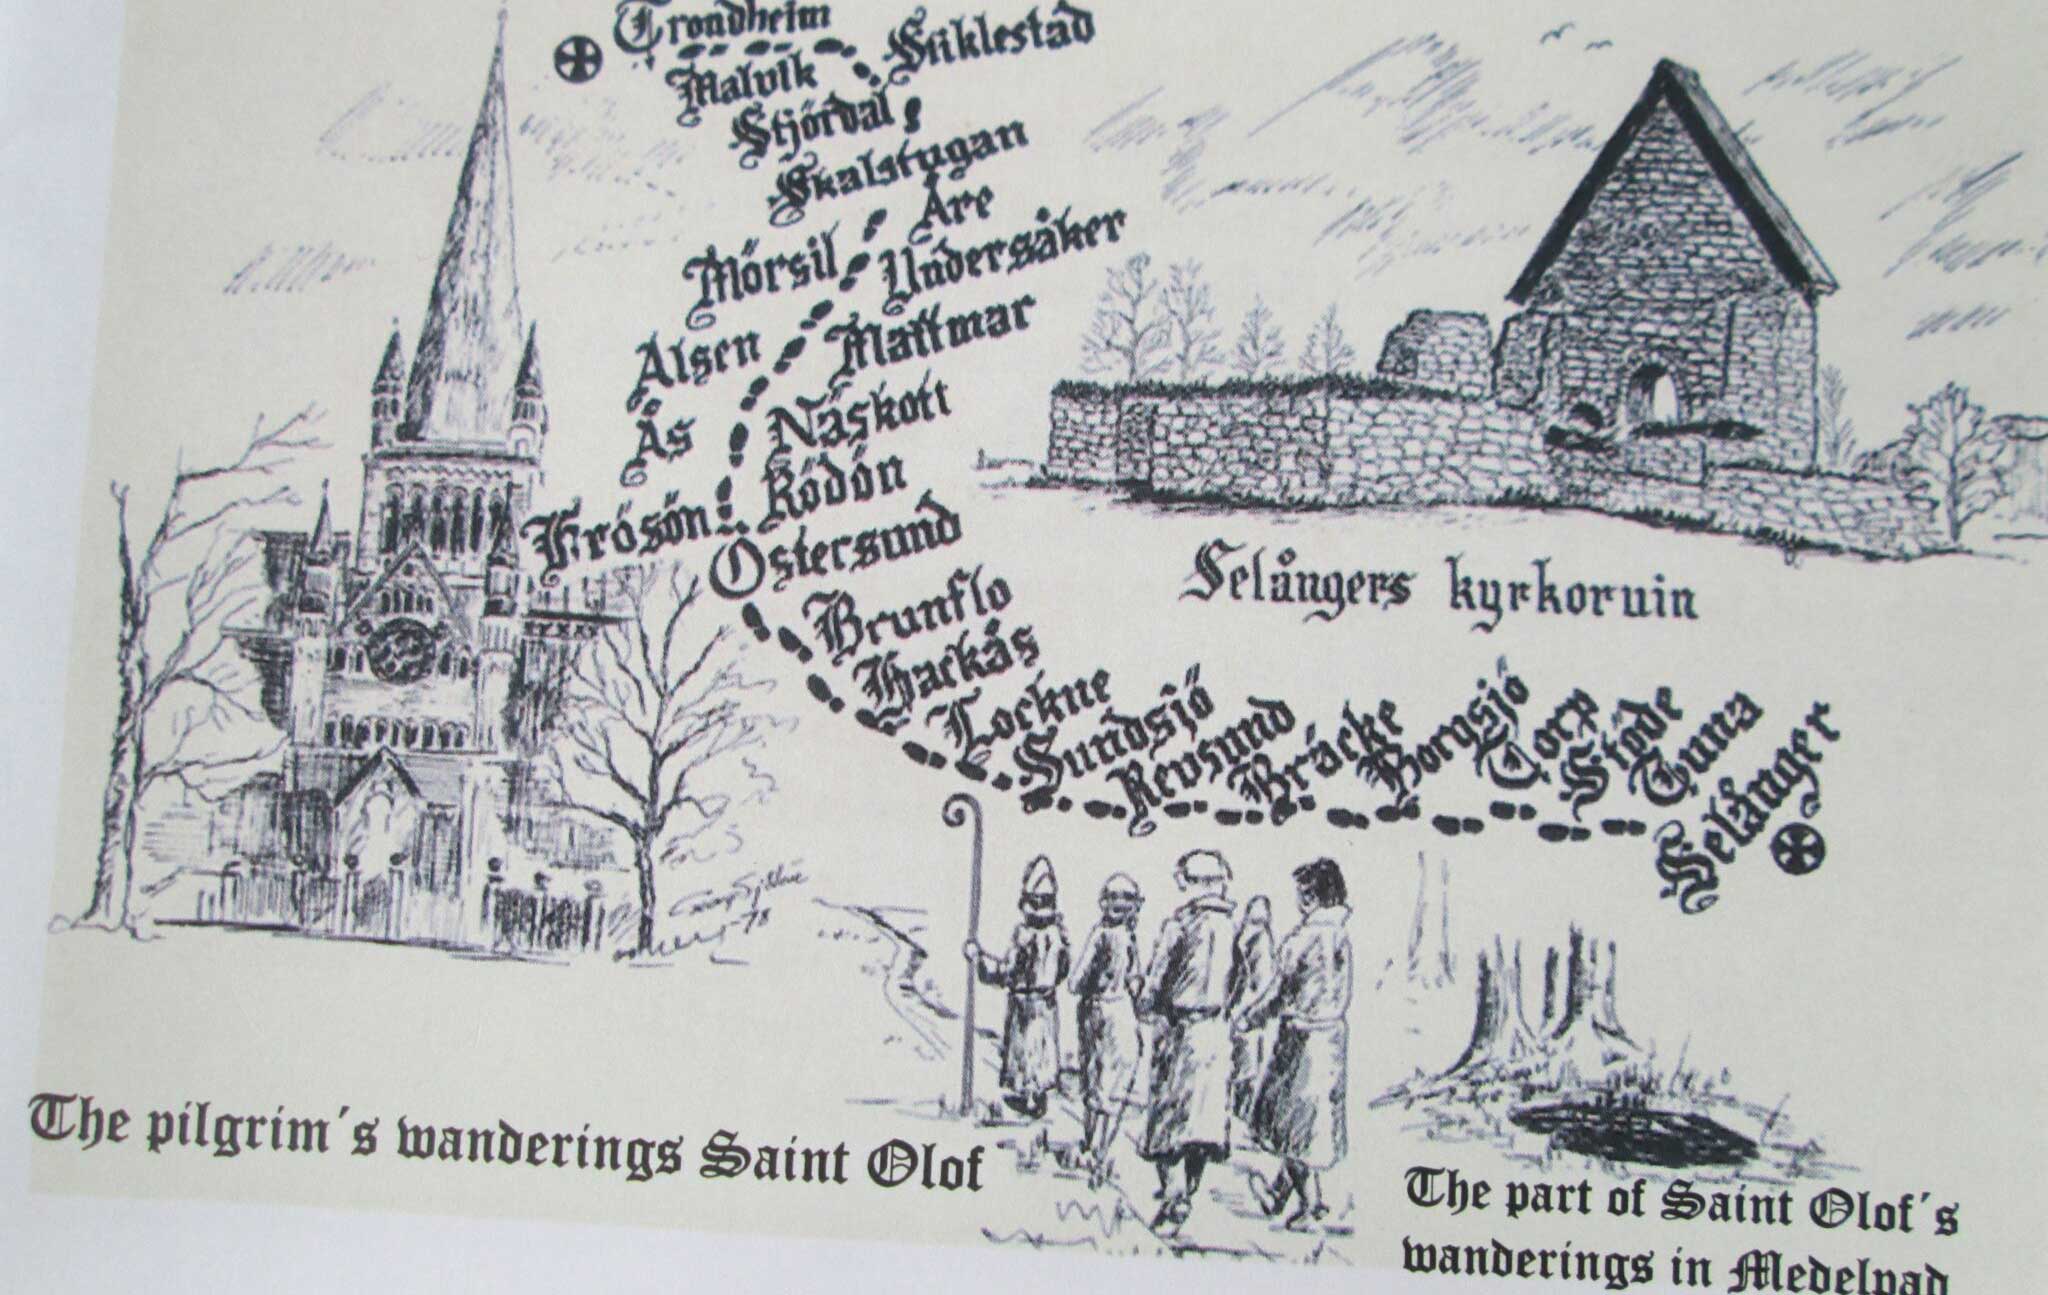 Trondheim
Stiklestad
Malvik
Stjördal
Skalstugan
Åre
Mörsil
Undersåker
Alsen
Mattmar
Ås
Näskott
Frösön
Rödön
Östersund
Brunflo
Hackås
Lockne
Sundsjö
Revsund
Bräcke
Borgsjö
Torp
Stöde
Tuna
Selånger
Selångers kyrkoruin
The pilgrim´s wanderings Saint Olof
The part of Saint Olof´s
wanderings in Medelpad